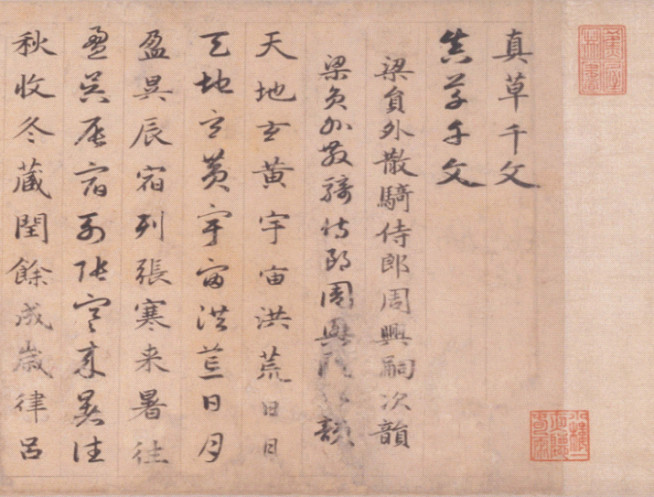 真草千文
真草千文
梁貟外散騎侍郎周興嗣次韻
梁貟外散騎侍郎周興嗣次韻
天地玄黄宇宙洪荒日月
天地玄黄宇宙洪荒日月
盈昃辰宿列張寒来暑往
盈昃辰宿列張寒来暑往
秋收冬蔵閏餘成歳律吕